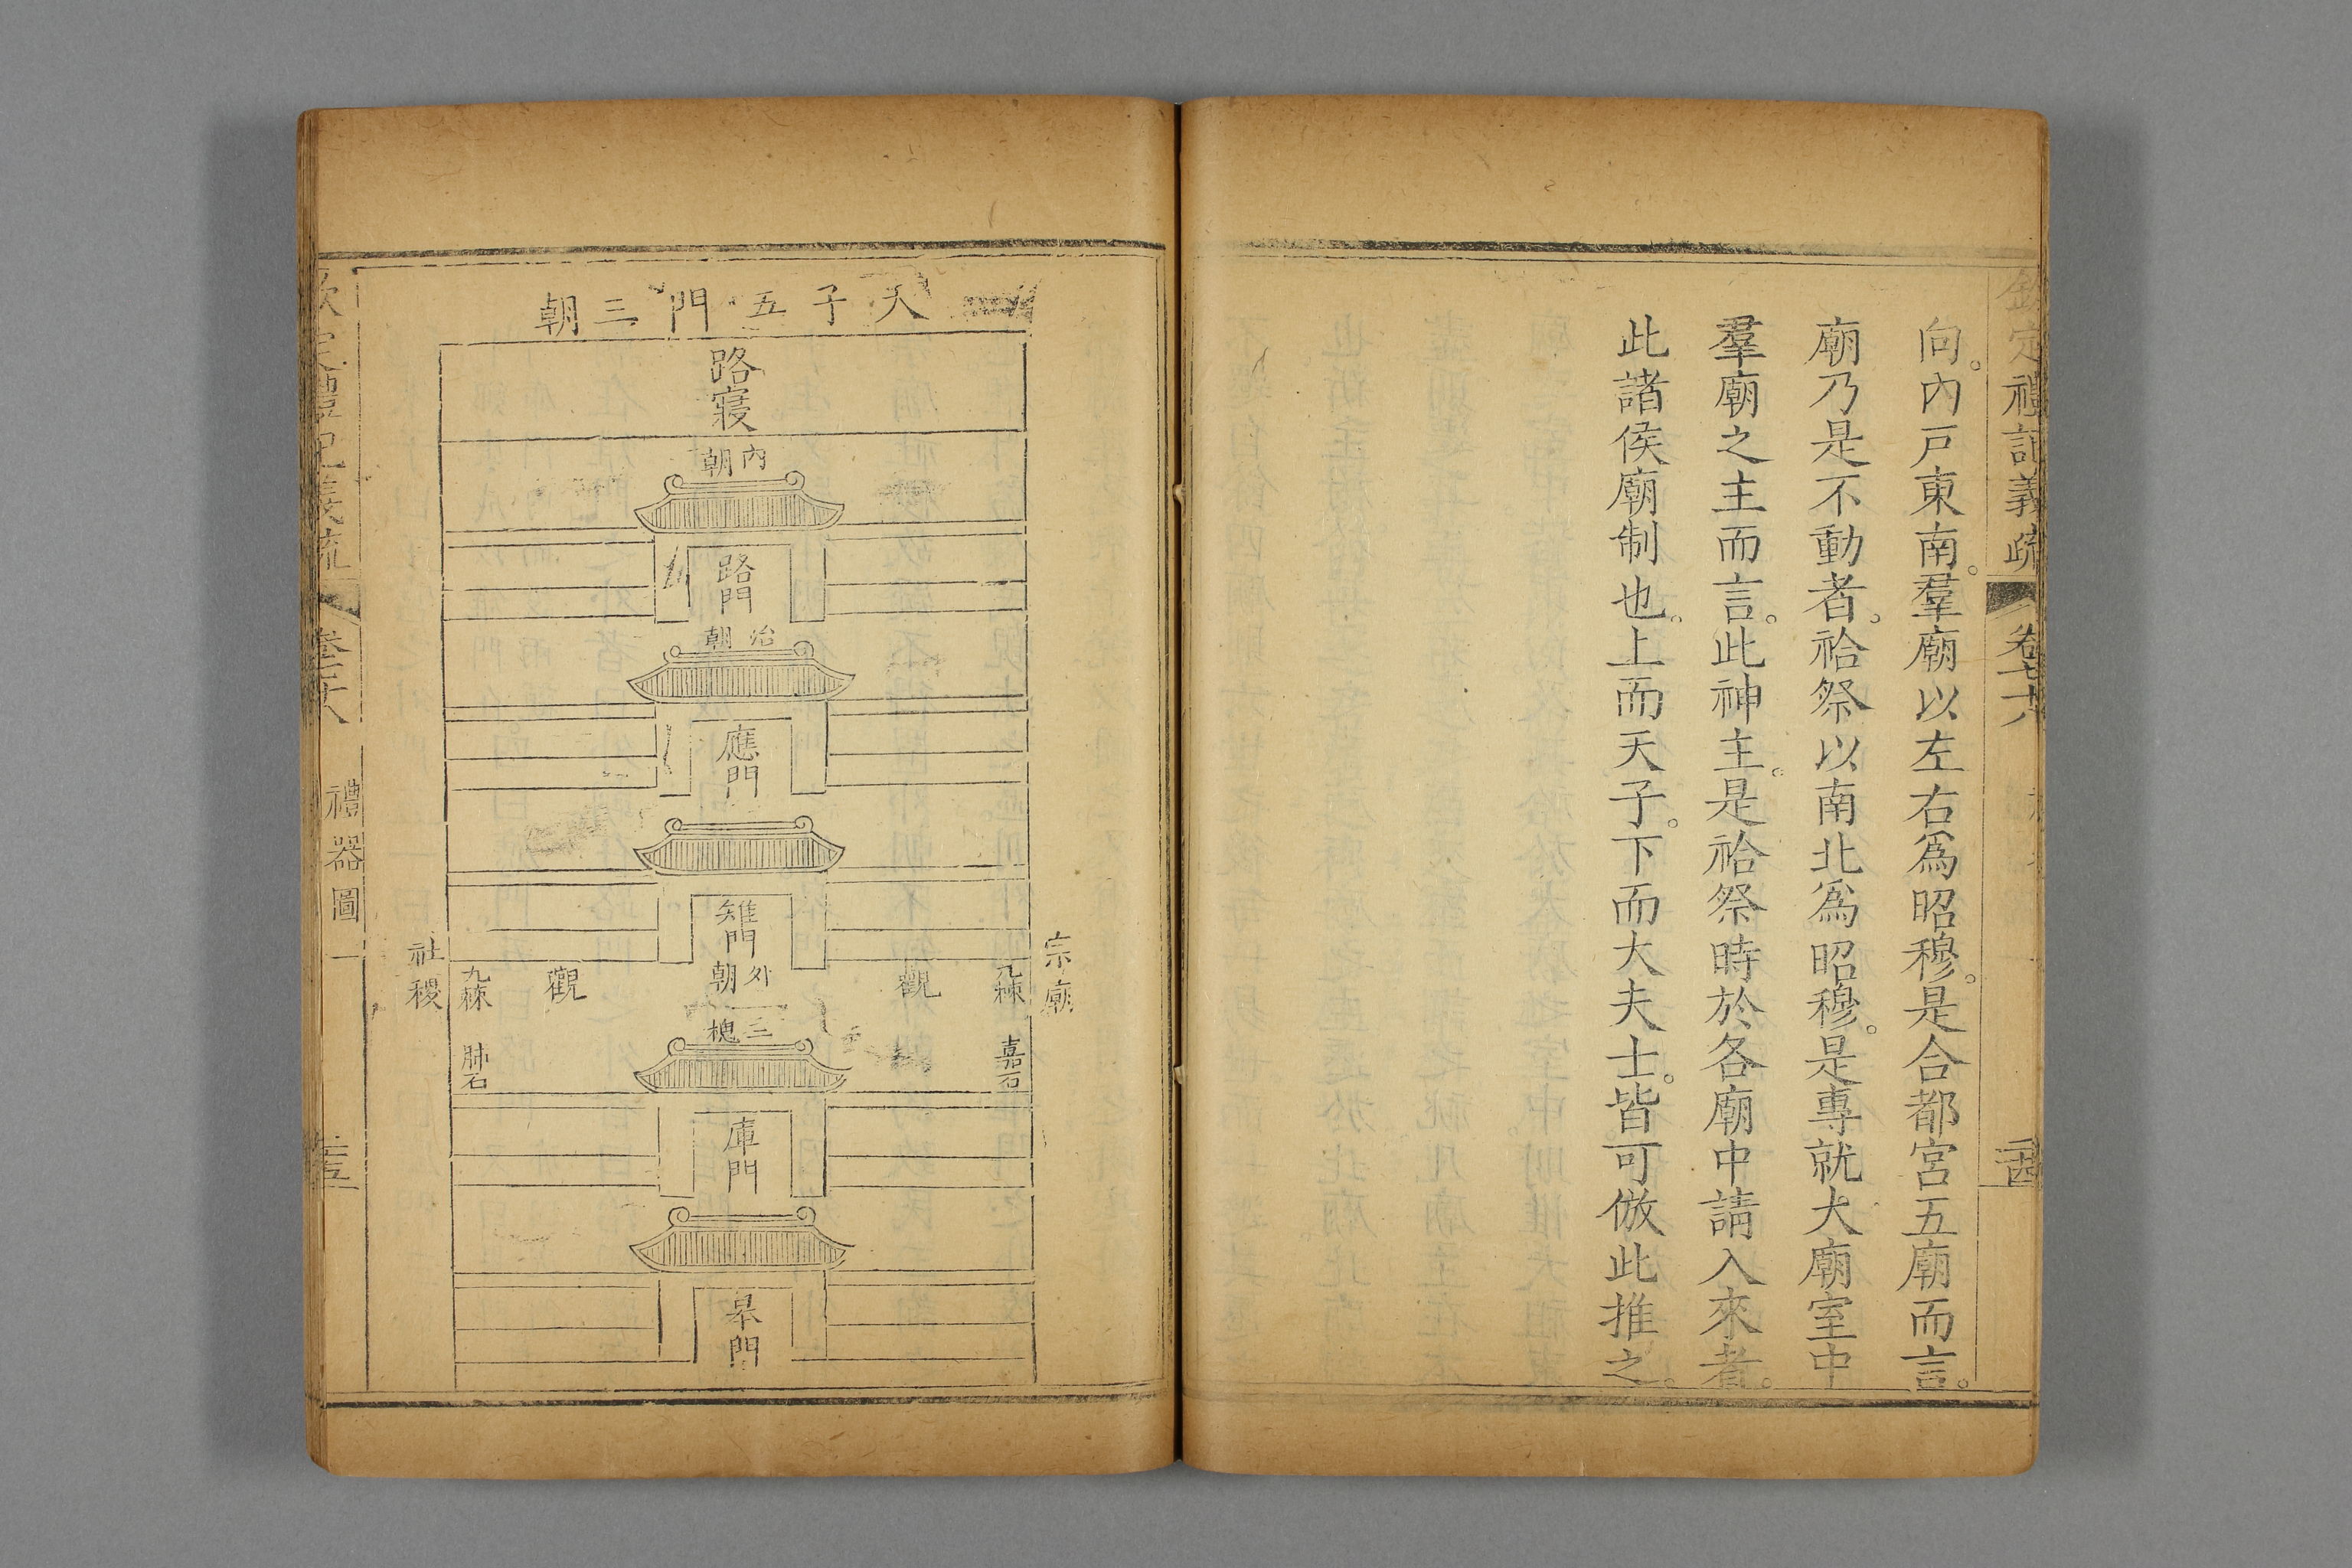 欽定禮記義疏
卷七十八
向。內戸東南。羣廟以左右爲昭穆。是合都宮五廟而言。
廟乃是不動者。祫祭以南北爲昭穆。是專就大廟室中
羣廟之主而言。此神主。是祫祭時於各廟中請入來者。
此諸侯廟制也。上而天子。下而大夫士。皆可倣此推之。
天子五門三朝
路寢
內朝
路門
治朝
應門
雉門
外朝
三槐
庫門
皋門
宗廟
九棘
嘉石
觀
觀
九棘
肺石
社稷
欽定禮記義疏
禮器圖一